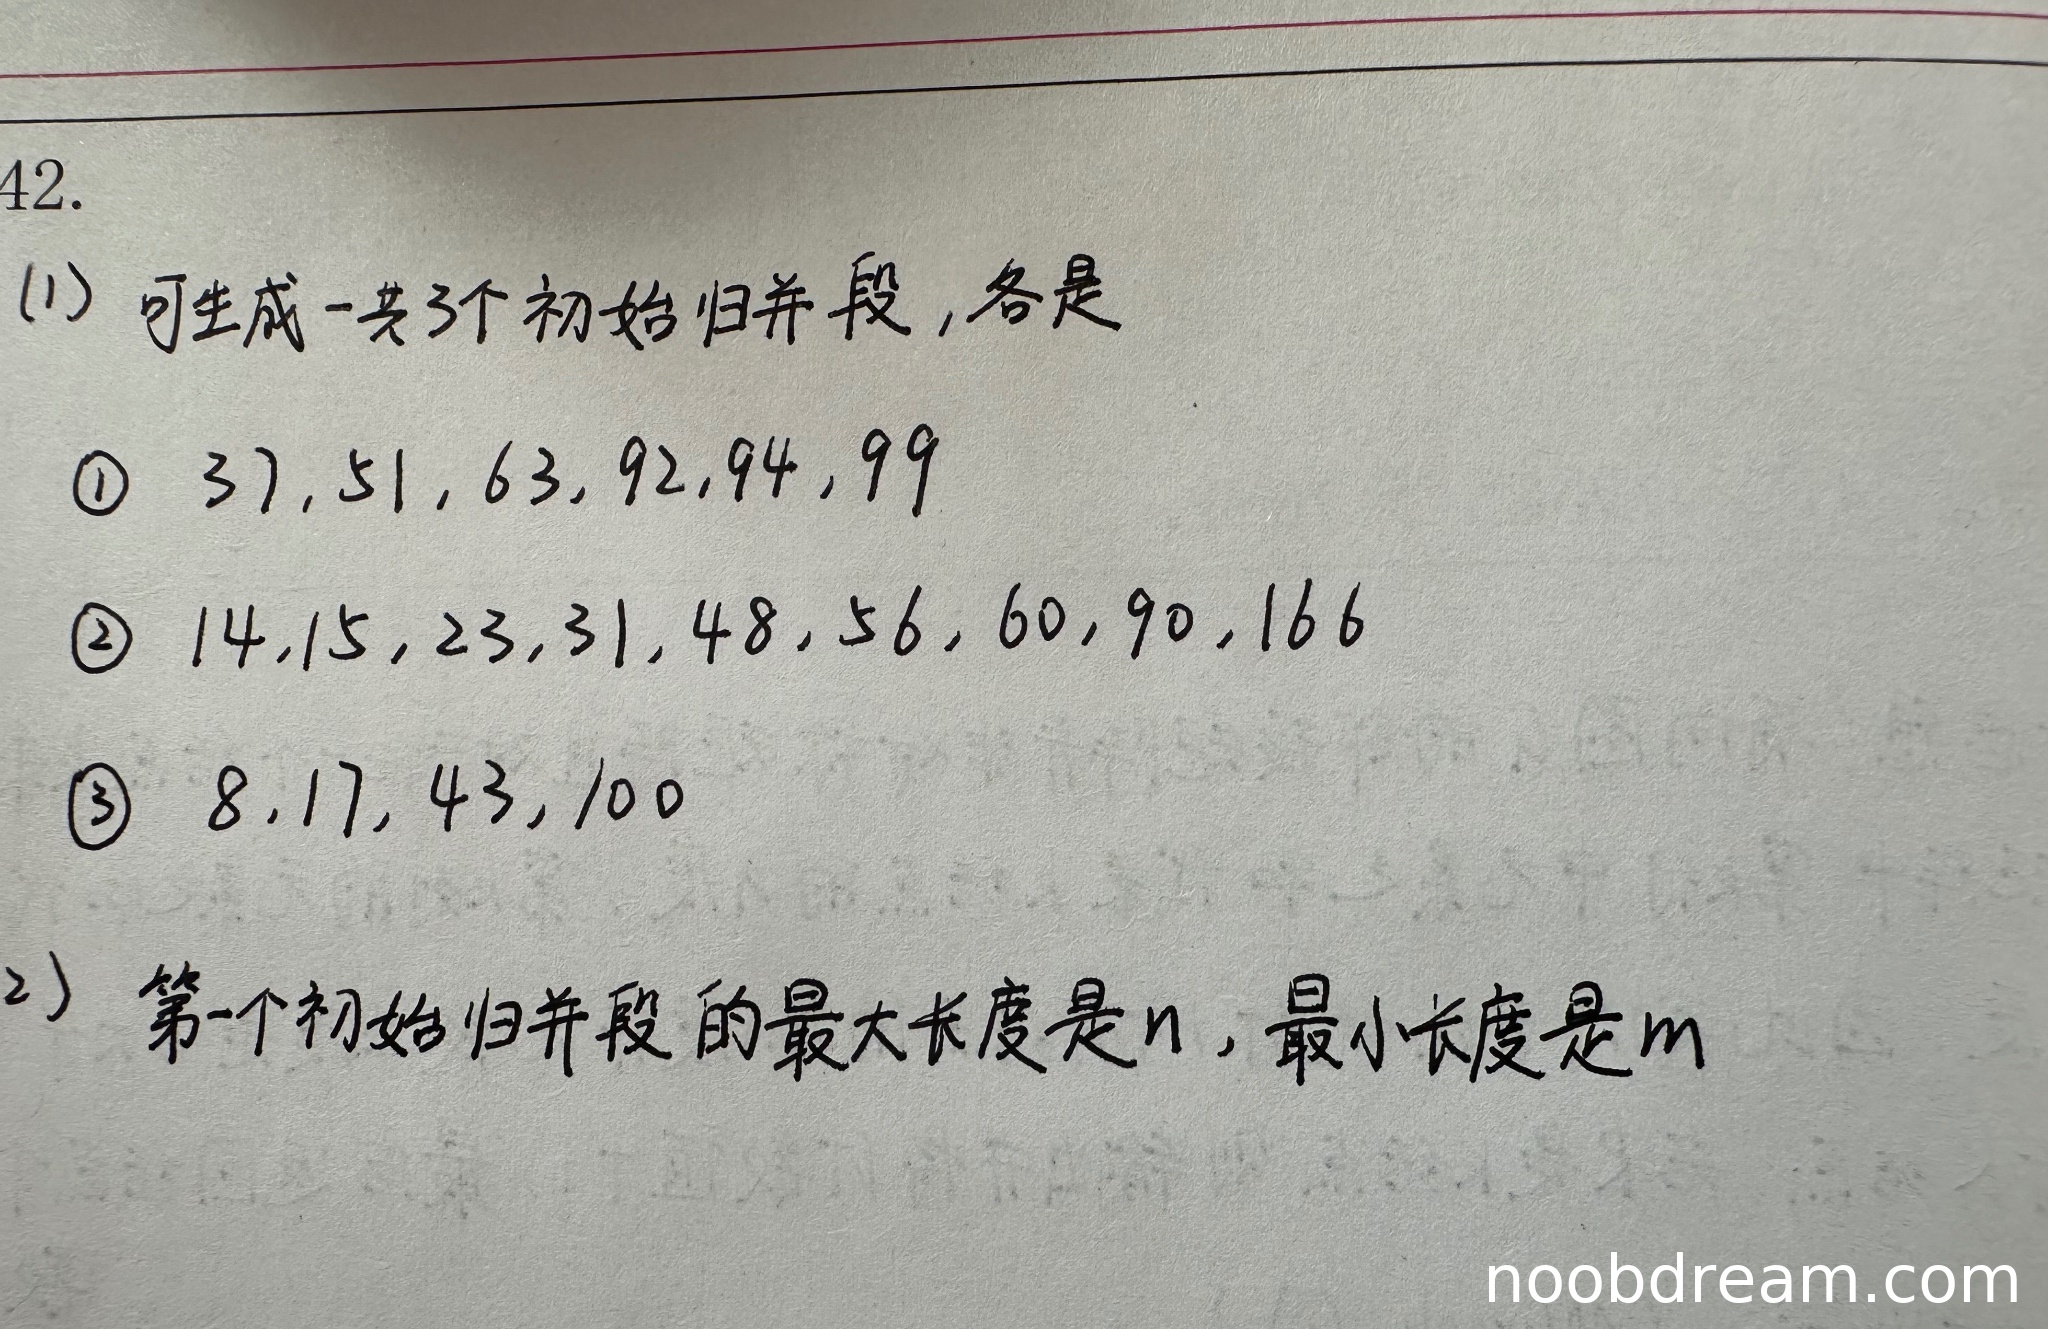 42.
(1) 可生成一共3个初始归并段,各是
① 37, 51, 63, 92, 94, 99
② 14, 15, 23, 31, 48, 56, 60, 90, 166
③ 8, 17, 43, 100
2) 第一个初始归并段的最大长度是n, 最小长度是m
noobdream.com